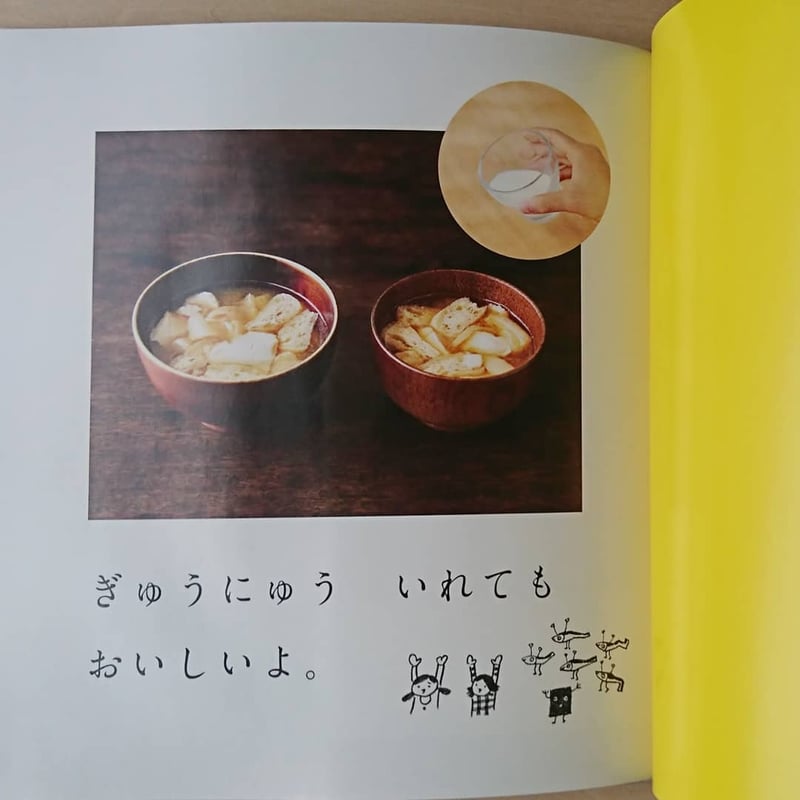 ぎゅうにゅう　いれても
おいしいよ。